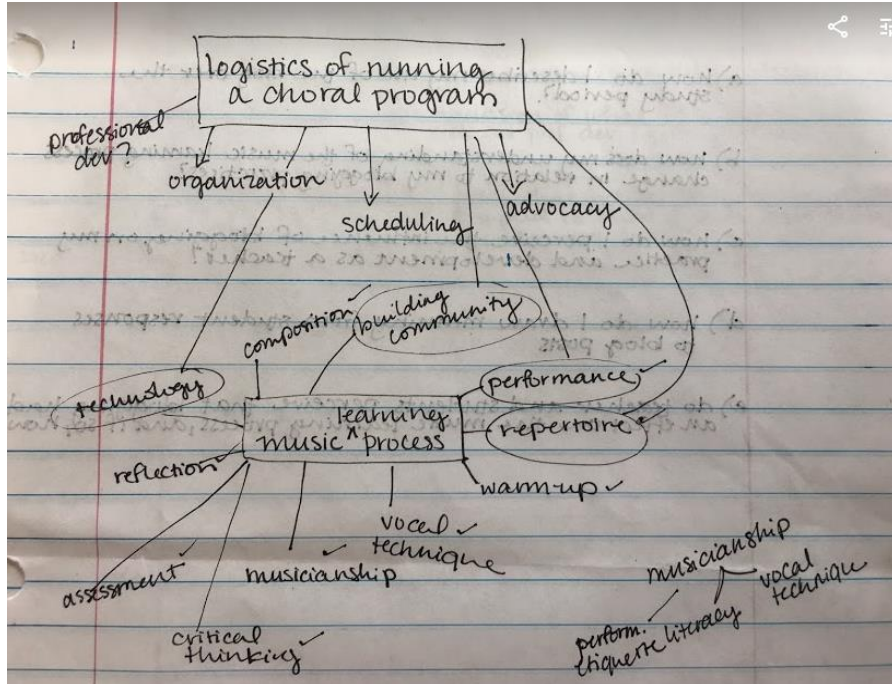 logistics of running
a choral program
professional
dev?
organization
scheduling
advocacy
composition
building
community
technology
performance
repertoire
learning
music ^ process
reflection
warm-up
vocal
technique
assessment
musicianship
critical
thinking
musicianship
vocal
technique
literacy
perform.
etiquette